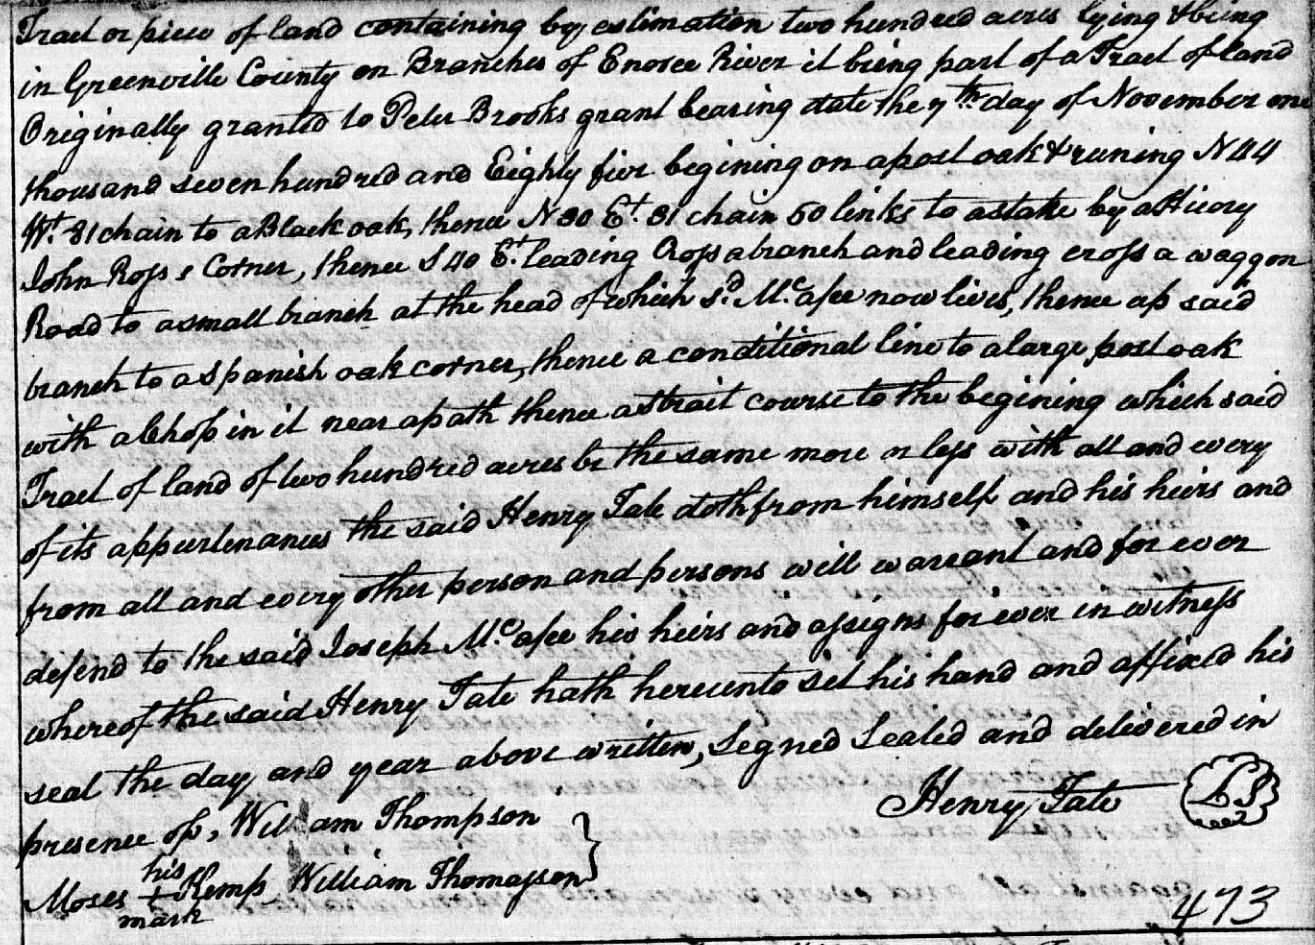 Tract or piece of land containing by estimation two hundred acres lying & being
in Greenville County on Branches of Enoree River it being part of a Tract of land
Originally granted to Peter Brooks grant bearing date the 7th day of November one
thousand seven hundred and Eighty five begining on a post oak & runing N 44
Wt. 81 chain to a Black oak, thence N 30 Et. 31 chain 50 links to a stake by a Hicory
John Ross s Corner, thence S 40 Et. leading Cross a branch and leading cross a waggon
Road to a small branch at the head of which sd. Mc.afee now lives, thence up said
branch to a spanish oak corner, thence a conditional line to a large post oak
with a Chop in it near a path thence a strait course to the begining which said
Tract of land of two hundred acres be the same more or less with all and every
of its appurtenances the said Henry Tate doth from himself and his heirs and
from all and every other person and persons will warrant and for ever
defend to the said Joseph Mc.afee his heirs and assigns for ever in witness
whereof the said Henry Tate hath hereunto set his hand and affixed his
seal the day and year above written, Segned Sealed and delivered in
presence of, William Thompson
Henry Tate LS
his
Moses + Kemp William Thomasson
mark
473